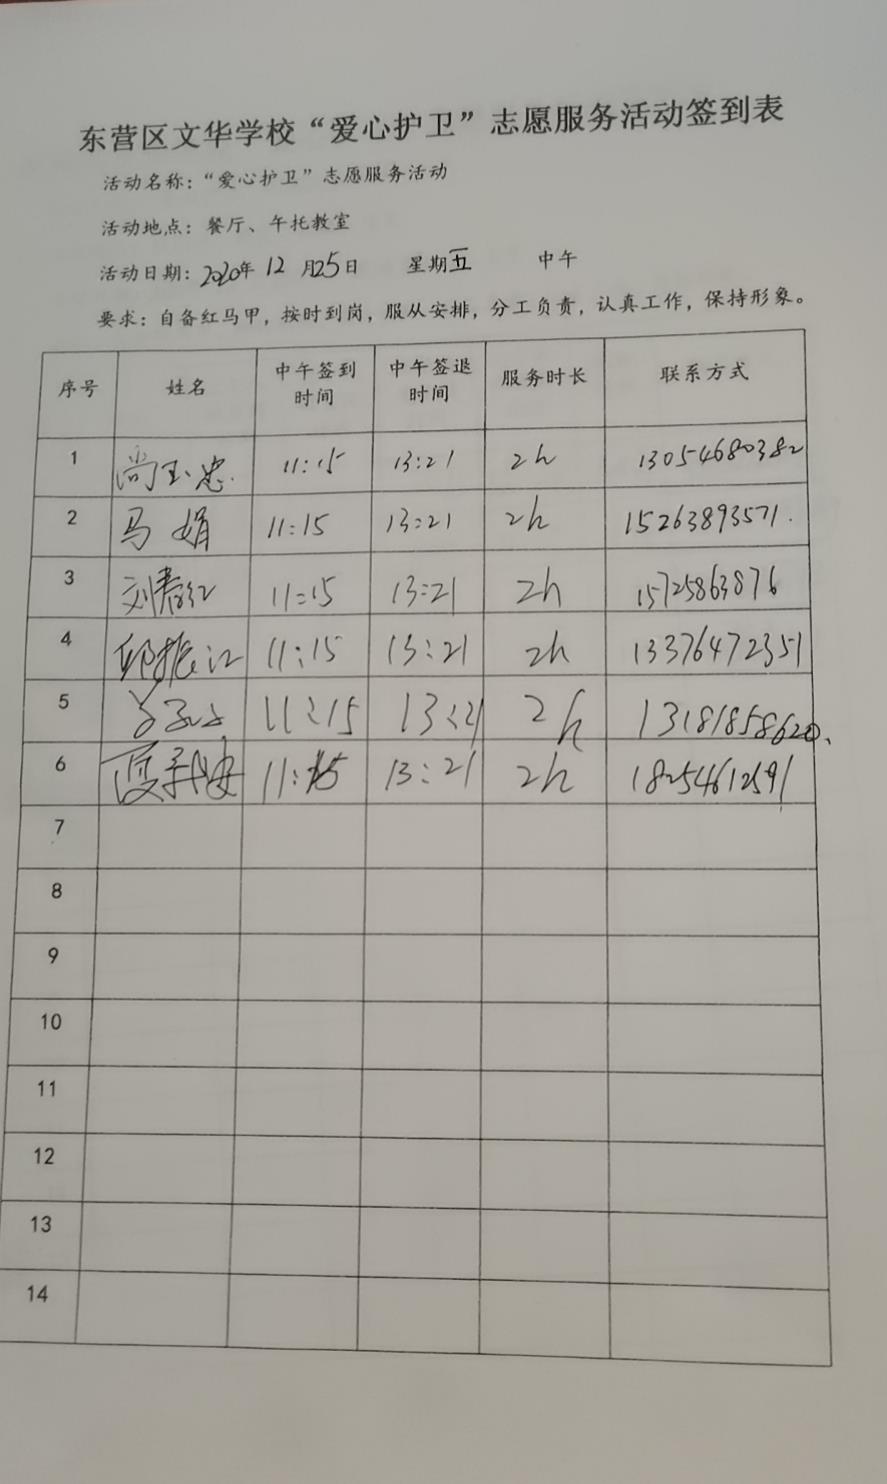 东营区文华学校“爱心护卫”志愿服务活动签到表
活动名称：“爱心护卫”志愿服务活动
活动地点：餐厅、午托教室
活动日期：2020年 12 月25日 星期五 中午
要求：自备红马甲，按时到岗，服从安排，分工负责，认真工作，保持形象。
序号 姓名 中午签到时间 中午签退时间 服务时长 联系方式
1 尚玉忠 11:15 13:21 2h 13054680382
2 马娟 11:15 13:21 2h 15263893571.
3 刘春红 11:15 13:21 2h 15725863876
4 邱振江 11:15 13:21 2h 13376472351
5 11:15 13:21 2h 13181858620、
6 11:15 13:21 2h 18254612591
7
8
9
10
11
12
13
14